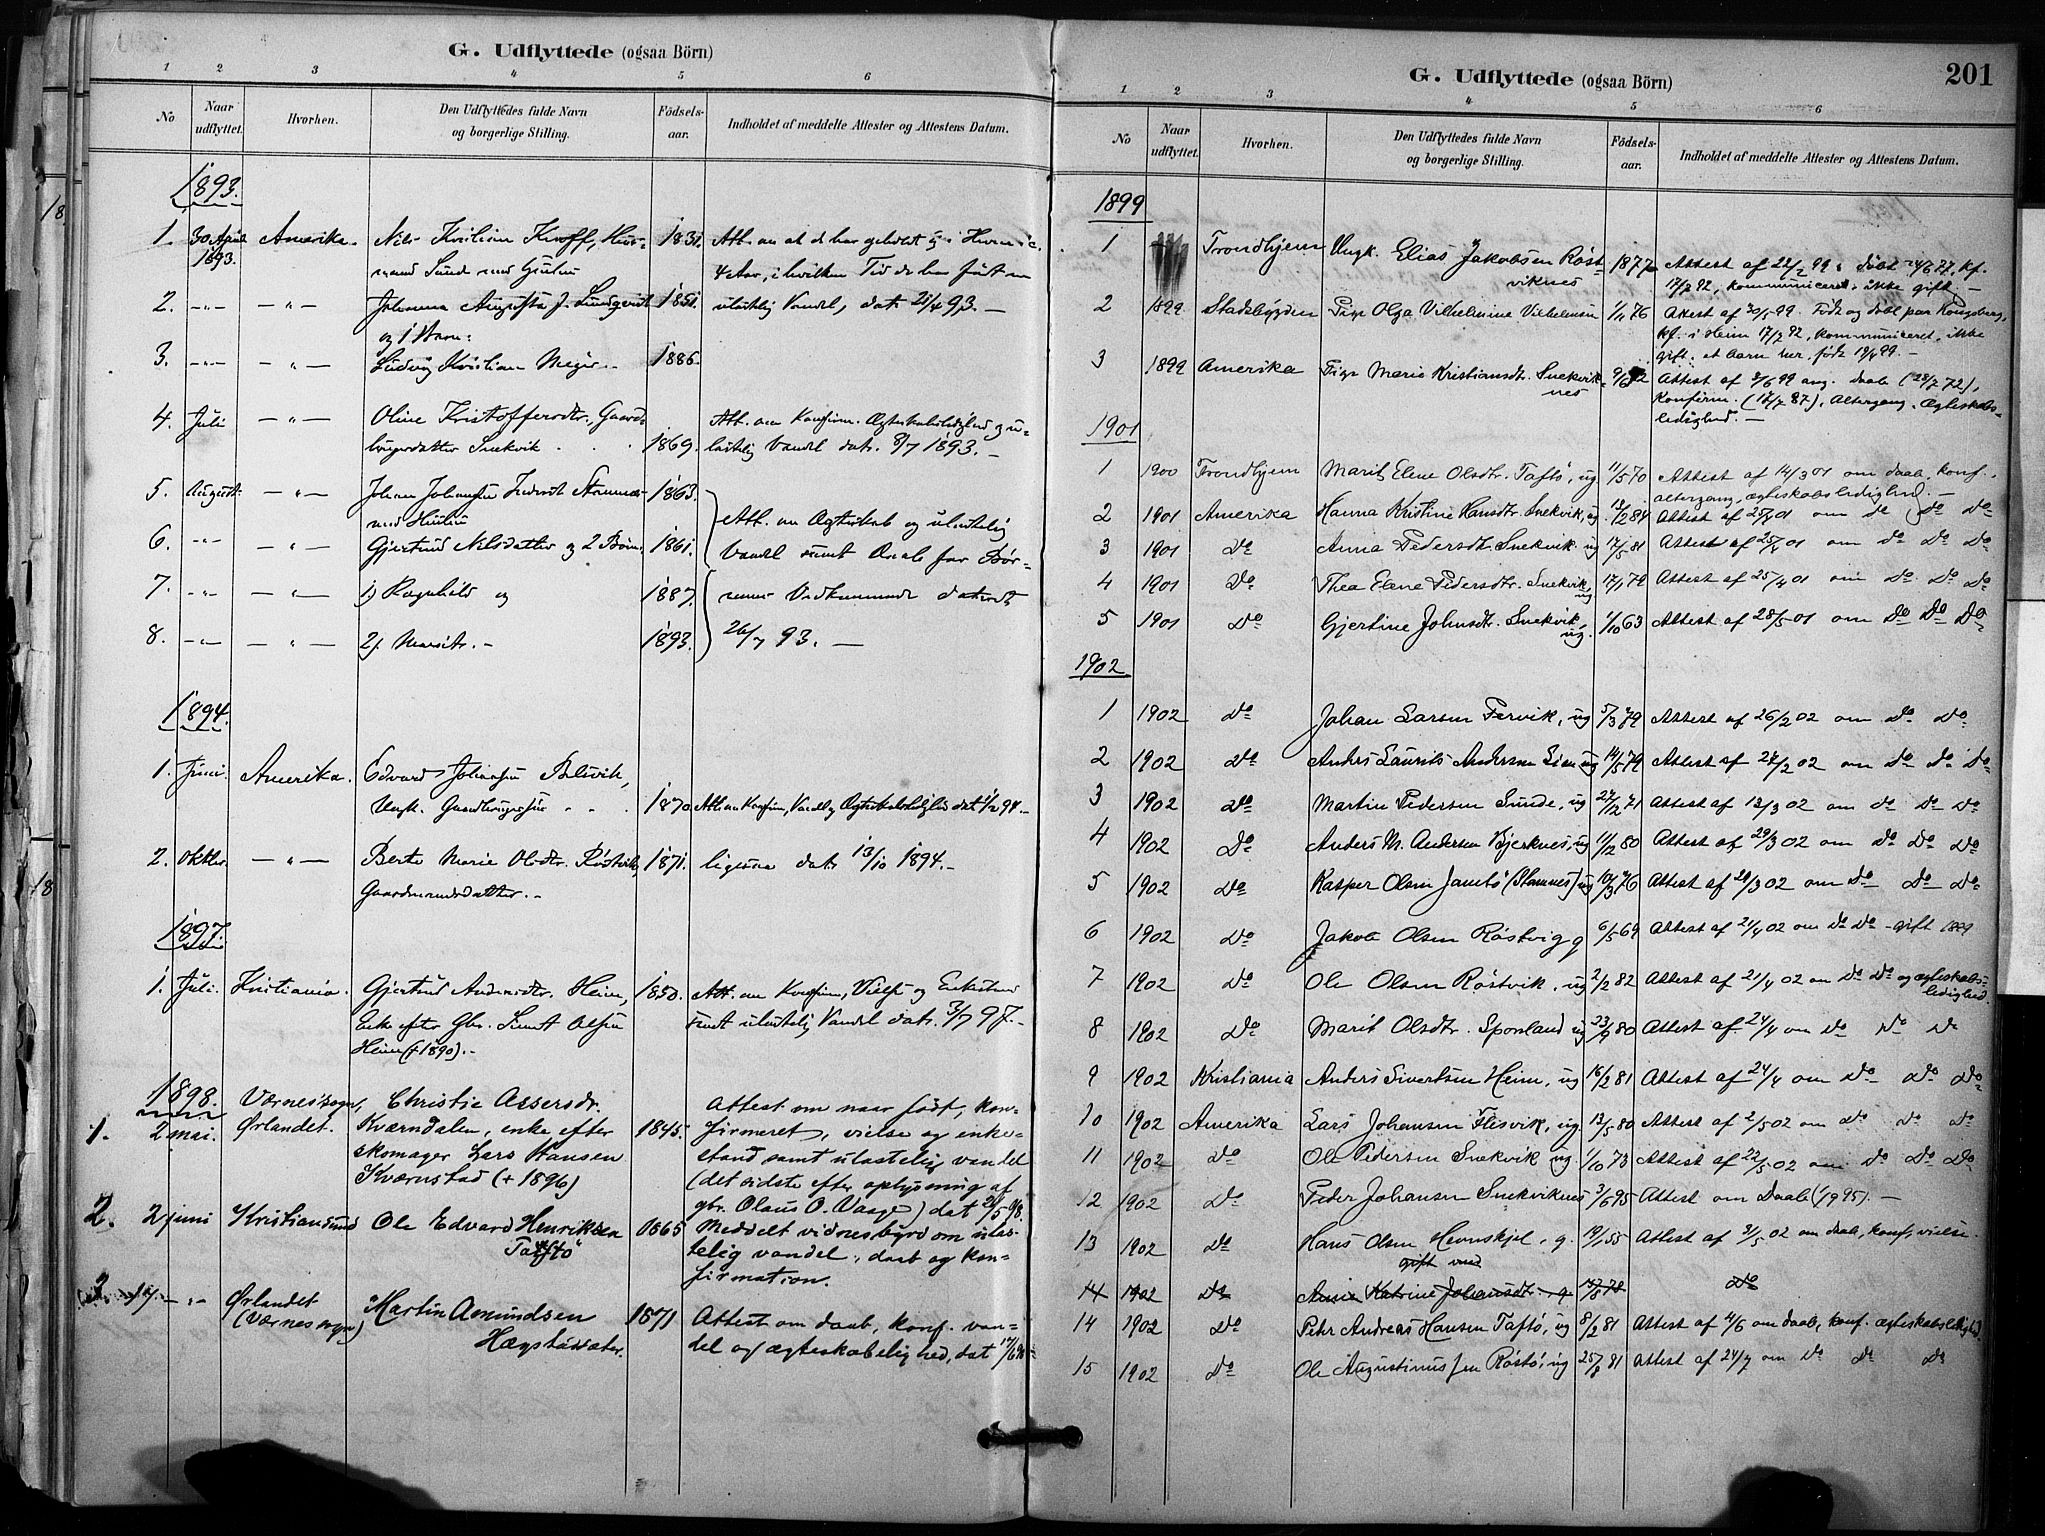 G. Udflyttede (ogsaa Börn)
1 2 3 4 5 6
No Naar udflyttet. Hvorhen. Den Udflyttedes fulde Navn og borgerlige Stilling. Födsels-aar. Indholdet af meddelte Attester og Attestens Datum.
1893.
1. 30 April 1893. Amerika. Nils Kristian 1831. Att. om at de har
4 Aar, i hvilken Tid de har fört en
2. -"- -"- Johanna Augusta J. Lundqvist 1851. ulastelig Vandel, dat. 21/4 93. -
og 1 Barn:
3. -"- -"- Ludvig Kristian 1886.
4. Juli -"- Oline Kristoffersdtr., Gaard- Att. om Konfirm. Ægteskabsledighed og u-
brugerdatter Snekvik 1869. lastelig Vandel dat. 8/7 1893. -
5. August -"- Johan Johansen 1863.
med Hustru Att. om Ægteskab og ulastelig
6. -"- -"- Gjertrud Nilsdatter og 2 Börn: 1861. Vandel samt Daab for Bör-
7. -"- -"- 1) Ragnhild og 1887. nenes Vedkommende dateret
8. -"- -"- 2) Marit. - 1893. 26/7 93. -
1894.
1. Juni. Amerika. Edvard Johansen Belsvik,
Ungk. Gaardbrugersön 1870. Att. om Konfirm., Vandel og Ægteskabsledighed dat. 94. -
2. Oktbr. -"- Berte Marie Olsdtr. Röstvik, 1871. ligesaa dat. 13/10 1894. -
Gaardmandsdatter. -
1897.
1. Juli. Kristiania. Gjertrud Andersdtr. Heim, 1850. Att. om Konfirm., Vielse og Enkestand
Enke efter Gbr. Olsen samt ulastelig Vandel dat. 3/7 97. -
Heim (+ 1890). -
1898. Værnessogn, Christie Assersdr. Attest om naar født, kon-
1. 2 mai. Ørlandet. Kværndalen, enke efter 1845. firmeret, vielse og enke-
skomager Lars Hansen stand samt ulastelig vandel
Kværnstad (+ 1896) (det sidste efter oplysning af
gbr. Olaus O. Vaage) dat 2/5 98.
2. 2 juni Kristiansund Ole Edvard Henriksen 1865 Meddelt vidnesbyrd om ulas-
Taftö telig vandel, daab og kon-
firmation.
3. 17 -"- Ørlandet Martin Amundsen 1871 Attest om daab, konf. van-
(Værnessogn) Hægstadsæter. del og ægteskabelighed, dat 17/6 98
G. Udflyttede (ogsaa Börn) 201
1 2 3 4 5 6
No Naar udflyttet. Hvorhen. Den Udflyttedes fulde Navn og borgerlige Stilling. Födsels-aar. Indholdet af meddelte Attester og Attestens Datum.
1899
1 Trondhjem Ungk. Elias Jakobsen Röst- 1877 Attest af 22/2 99 døbt 77, kf.
viknes 17/7 92, kommuniceret, ikke gift. -
2 1899 Stadsbygden Pige Olga Vilhelmine Vilhelmsen 1/11 76 Attest af 30/5 99. Født og døbt paa Kongsberg,
kf. i Heim 17/7 92, kommuniceret, ikke
gift; et barn her, født 99. -
3 1899 Amerika Pige Marie Kristiansdtr. Snekvik- 9/6 72 Attest af 3/6 99 ang. daab (28/7 72),
nes Konfirm. (17/7 87), Altergang, Ægteskabs-
ledighed. -
1901
1 1900 Trondhjem Marit Elene Olsdtr. Taftö, ug 11/5 70 Attest af 14/3 01 om daab, konf.,
altergang, ægteskabsledighed. -
2 1901 Amerika Hanna Kristine Hansdtr. Snekvik, ug. 12/2 84 Attest af 25/4 01 om do do do
3 1901 Do Anna Pedersdtr. Snekvik. ug 17/5 81 Attest af 25/4 01 om do do do
4 1901 Do Thea Elene Pedersdtr. Snekvik, ug 17/1 79 Attest af 25/4 01 om do do do
5 1901 Do Gjertine Johnsdtr. Snekvik, ug. 1/10 63 Attest af 28/5 01 om do do do
1902
1 1902 Do Johan Larsen Tervik, ug 5/3 79 Attest af 26/2 02 om do do
2 1902 Do Anders Laurits Andersen Lien ug 14/5 79 Attest af 27/2 02 om do do do
3 1902 Do Martin Pedersen Sunde, ug 27/12 71 Attest af 13/3 02 om do do do
4 1902 Do Anders M. Andersen Bjerknes, ug 11/12 80 Attest af 29/3 02 om do do do
5 1902 Do Kasper Olsen Jamtö (Stamnes) ug 10/3 76 Attest af 29/3 02 om do do do
6 1902 Do Jakob Olsen Röstvig g 6/5 69 Attest af 21/4 02 om do do - gift 1899
7 1902 Do Ole Olsen Röstvik, ug 2/2 82 Attest af 21/4 02 om do do og ægteskabs-
ledighed.
8 1902 Do Marit Olsdtr. Sponland ug 23/9 80 Attest af 24/4 om do do do
9 1902 Kristiania Anders Sivertsen Heim, ug 16/2 81 Attest af 24/4 om do do do
10 1902 Amerika Lars Johansen Flesvik, ug 13/5 80 Attest af 2/5 02 om do do do
11 1902 Do Ole Pedersen Snekvik ug 1/10 73 Attest af 22/5 02 om do do do
12 1902 Do Peder Johansen Snekviknes 3/6 95 Attest om Daab (1/9 95). -
13 1902 Do Hans Olsen Hevnskjel, g. 19/1 55 Attest af 31/5 02 om daab, konf., vielse.
gift med
14 1902 Do Anne Katrine Johansdtr. g 13/8 78 do
14 1902 Do Peter Andreas Hansen Taftö, ug 8/2 81 Attest af 4/6 om daab, konf. ægteskabsledighed.
15 1902 Do Ole Augustinus Jen Röstö, ug 25/8 81 Attest af 24/7 om do do do